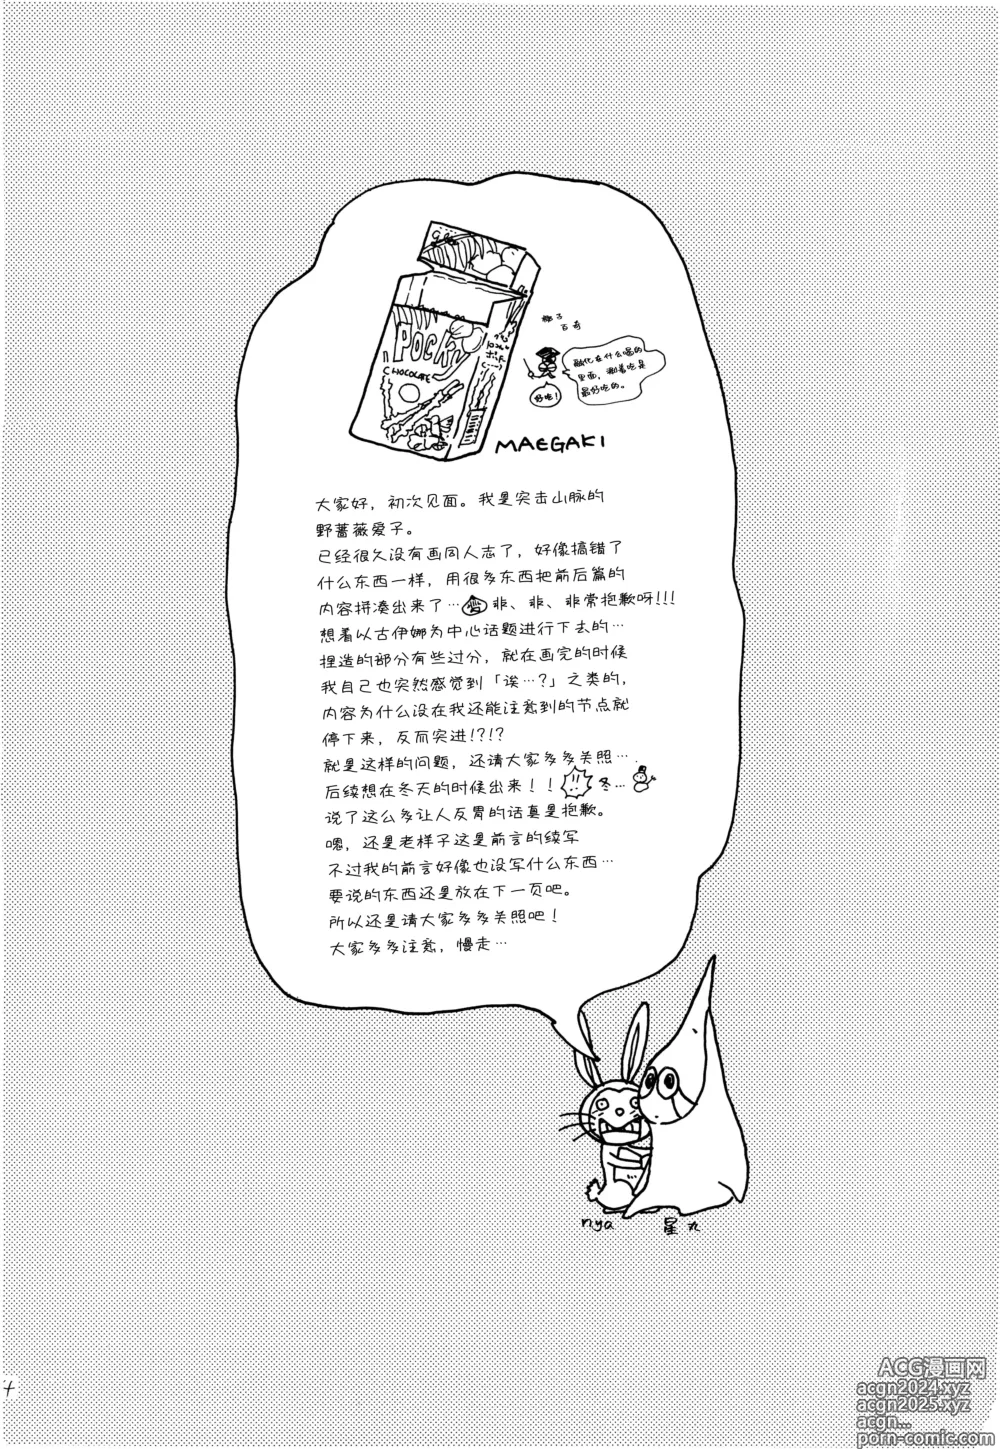 POCKY
CHOCOLATE
椰子
百奇
融化在什么喝的
里面，测着吃是
最好吃的。
好吃！
MAEGAKI
大家好，初次见面。我是突击山脉的
野蔷薇爱子。
已经很久没有画同人志了，好像搞错了
什么东西一样，用很多东西把前后篇的
内容拼凑出来了… 非、非、非常抱歉呀!!!
想着以古伊娜为中心话题进行下去的…
捏造的部分有些过分，就在画完的时候
我自己也突然感觉到「诶…?」之类的，
内容为什么没在我还能注意到的节点就
停下来，反而突进!?!?
就是这样的问题，还请大家多多关照….
后续想在冬天的时候出来！！ 冬…
说了这么多让人反胃的话真是抱歉。
嗯，还是老样子这是前言的续写
不过我的前言好像也没写什么东西…
要说的东西还是放在下一页吧。
所以还是请大家多多关照吧！
大家多多注意，慢走…
nya
星丸
4
ACG漫画网
acgn2024.xyz
acgn2025.xyz
acgn...
porn-comic.com